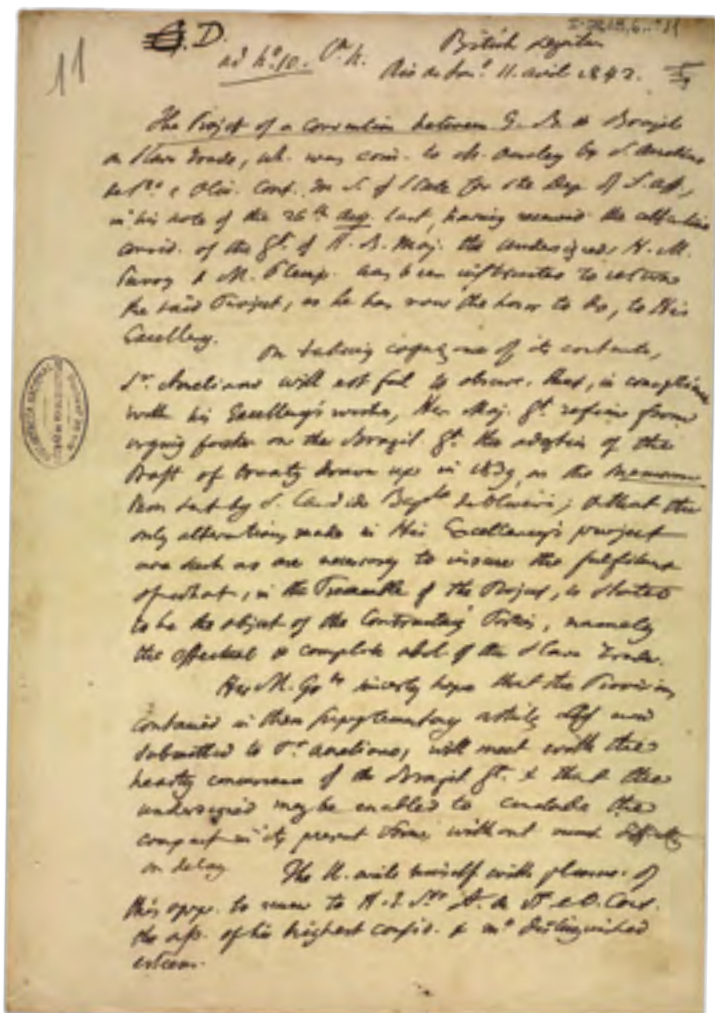 11
G. D.
ad No. 10.
British Legation
Rio de Jan.o 11. avril 1842.
The Projet of a convention between G. B. & Brazil
on Slave Trade, wh. was com. to Mr. Ouseley by S. Aureliano
de Sza. e Oliv. Cout. M. S. of State for the Dep. of F. aff,
in his note of the 26th Aug. last, having received the
consid. of the Gt. of H. B. Maj. the undersigned H. M.
Envoy & M. Plenip. has been instructed to return
the said Projet, as he has now the honor to do, to His
Excellency.
On taking cognizance of its contents,
Sr. Aureliano will not fail to observe that, in compliance
with his Excellency's wishes, Her Maj. Gt. refrain from
urging further on the Brazil Gt. the adoption of the
Draft of Treaty drawn up in 1839, or the
sent by S. Candido Bapta. de Oliveira; & that the
only alterations made in His Excellency's project
are such as are necessary to insure the fulfilment
of what, in the Preamble of the Projet, is stated
to be the object of the Contracting Parties, namely
the effectual & complete abol. of the Slave Trade.
Her M. Govt. sincerely hope that the Provisions
contained in these supplementary articles now
submitted to Sr. Aureliano, will meet with the
hearty concurrence of the Brazil Gt. & that the
undersigned may be enabled to conclude the
compact in its present form, without much difficulty
or delay.
The U. avails himself with pleasure of
this opp. to renew to H. E. Sr. A. de S. e O. Cout.
the ass. of his highest consid. & mt. distinguished
esteem.